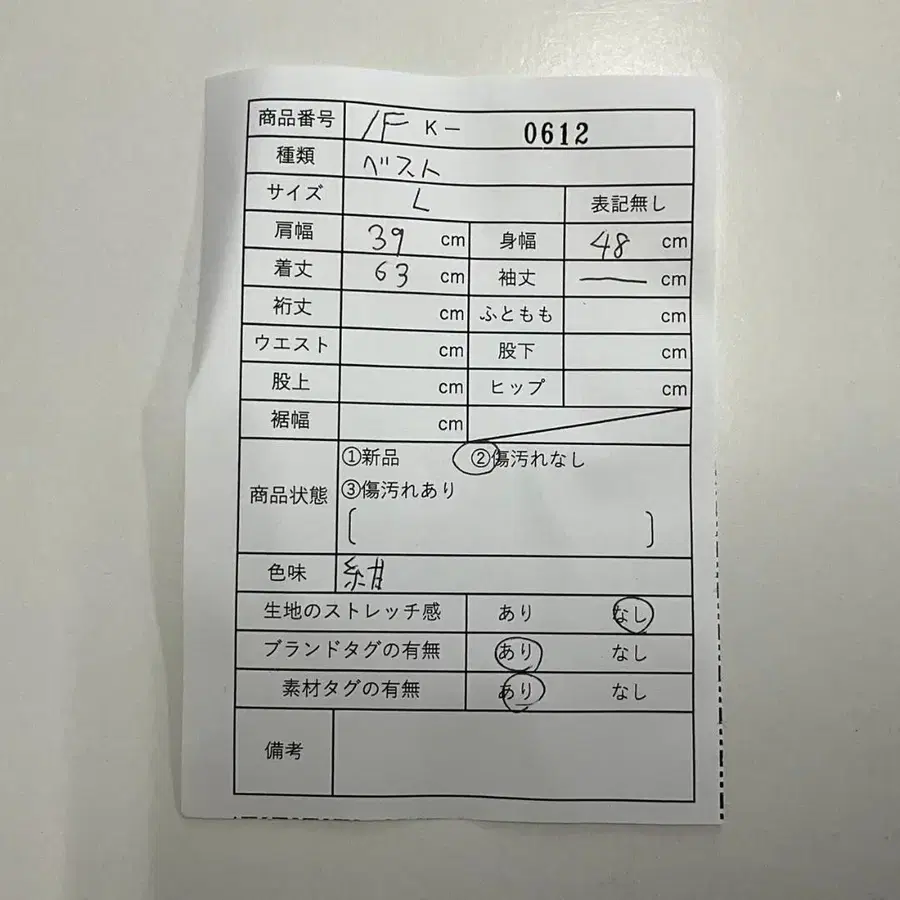 商品番号 1F K- 0612
種類 ベスト
サイズ L 表記無し
肩幅 39 cm 身幅 48 cm
着丈 63 cm 袖丈 — cm
裄丈 cm ふともも cm
ウエスト cm 股下 cm
股上 cm ヒップ cm
裾幅 cm
商品状態 ①新品 ②傷汚れなし
③傷汚れあり
[ ]
色味 紺
生地のストレッチ感 あり なし
ブランドタグの有無 あり なし
素材タグの有無 あり なし
備考